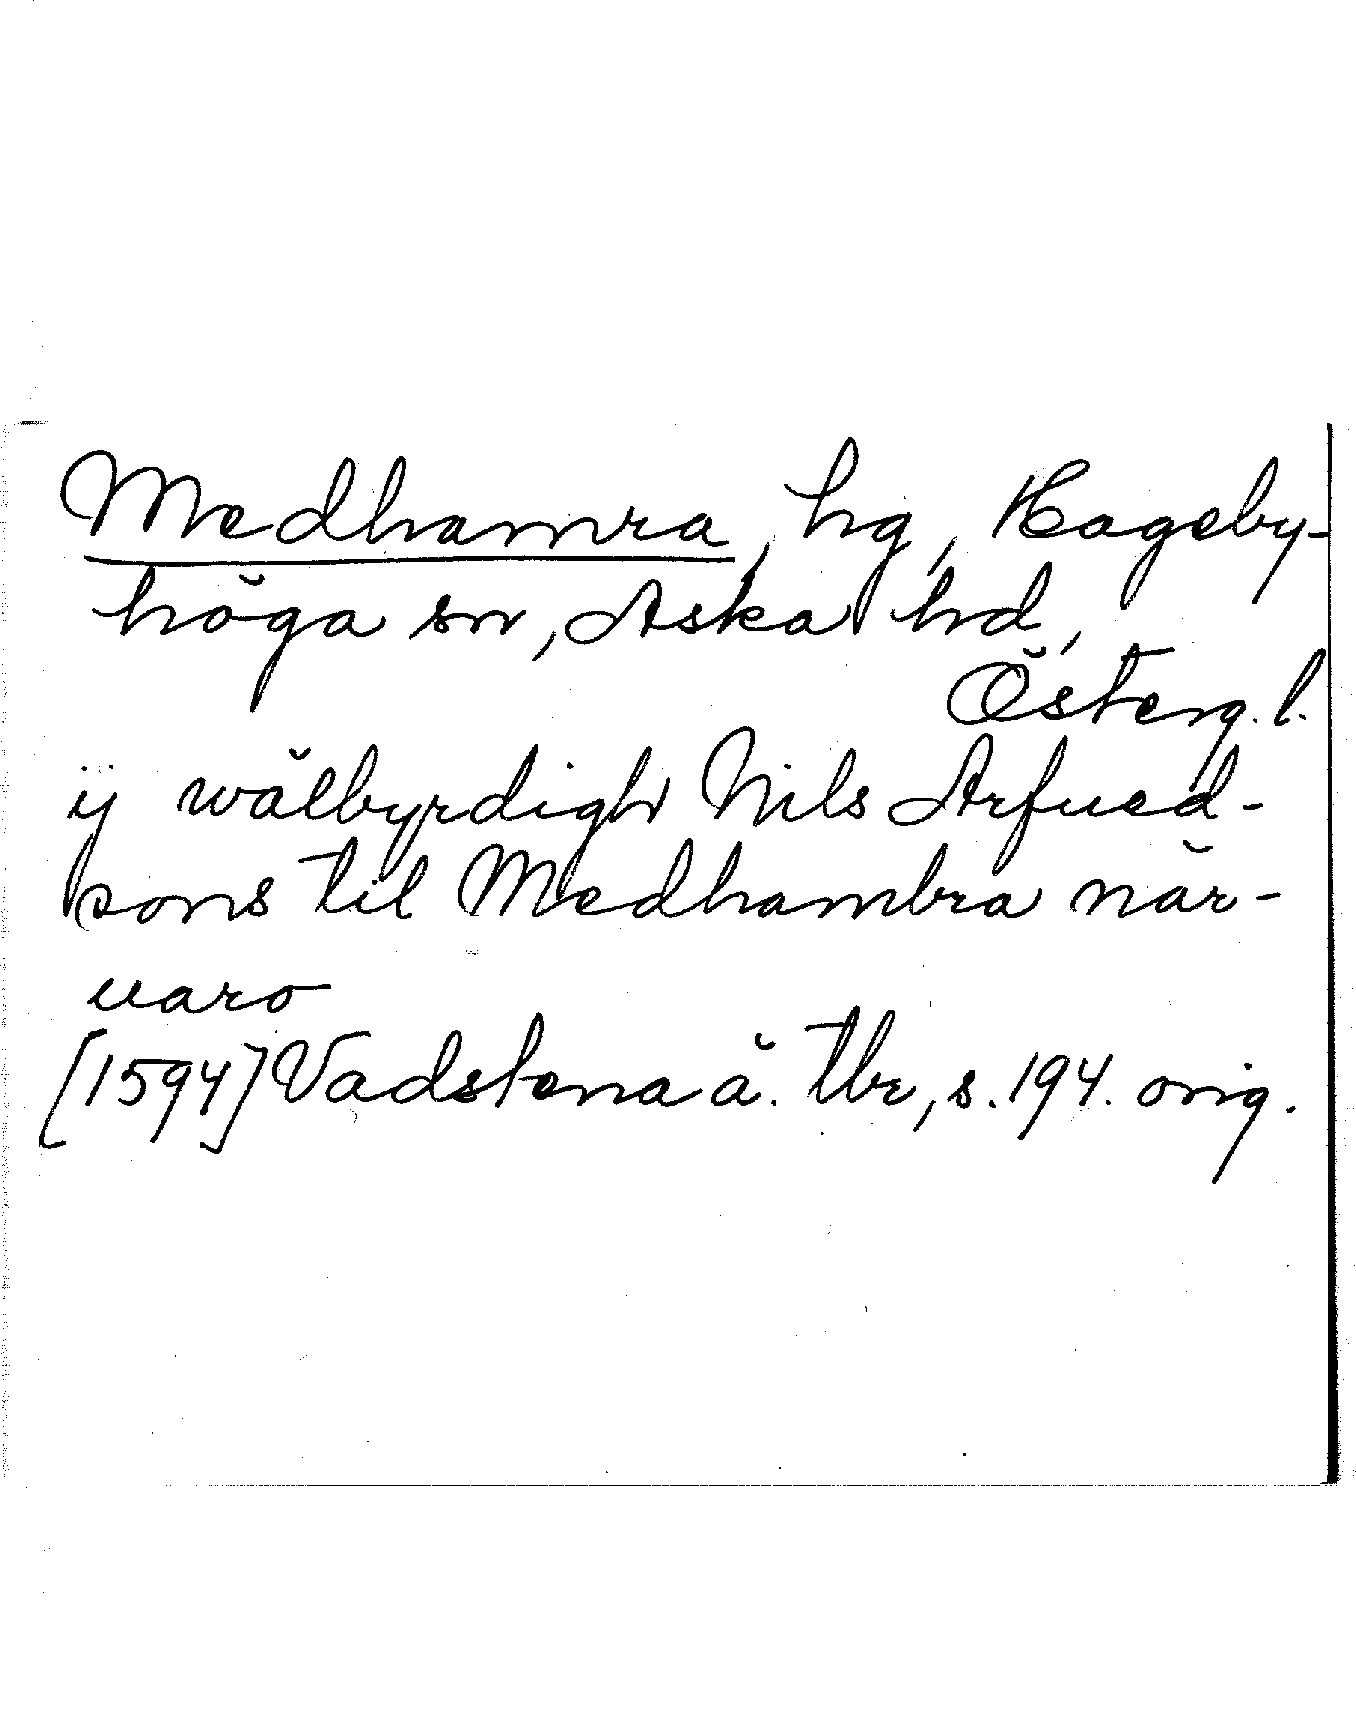 Medhamra, hg, Hageby-
höga sn, Aska hd,
Österg.l.
ij wälbyrdigh Nils Arfued-
sons til Medhambra när-
uaro
[1594] Vadstena ä. tbr, s. 194. orig.